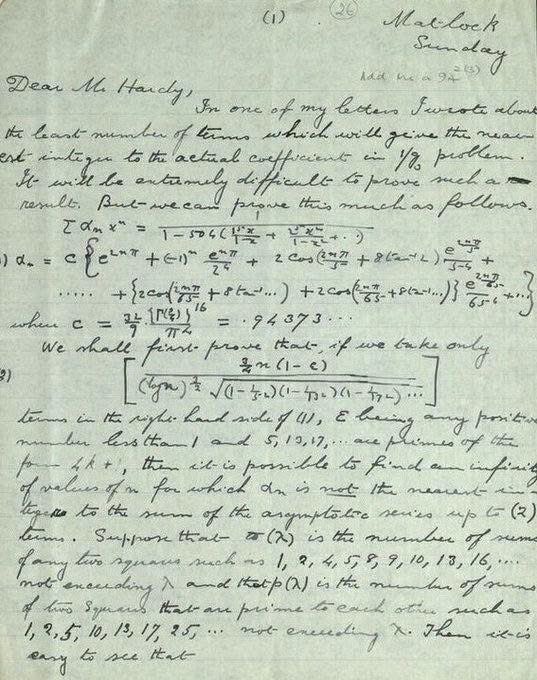 (1) (26) Matlock
Sunday
Add Ms a 94 2(3)
Dear Mr Hardy,
In one of my letters I wrote about
the least number of terms which will give the near-
est integer to the actual coefficient in 1/g₃ problem.
It will be extremely difficult to prove such a
result. But we can prove this much as follows.
Σ αₙ xⁿ = 1 / (1 - 504 (1⁵x/(1-x) + 2⁵x²/(1-x²) + ...))
1) αₙ = C { e^(2nπ) + (-1)ⁿ e^(nπ)/2⁴ + 2 cos(2nπ/5 + 8 tan⁻¹2) e^(2nπ/5)/5⁴ +
..... + {2 cos(2nπ/65 + 8 tan⁻¹...) + 2 cos(2nπ/65 + 8 tan⁻¹...)} e^(2nπ/65)/65⁴ + ...}
where C =  = .94373...
We shall first prove that, if we take only
2) [ ¾ n (1 - ε) / ((log n)^(3/2) √((1 - 1/5²)(1 - 1/13²)(1 - 1/17²) ...)) ]
terms in the right hand side of (1), ε being any positive
number less than 1 and 5, 13, 17, ... are primes of the
form 4k + 1, then it is possible to find an infinity
of values of n for which αₙ is not the nearest in-
teger to the sum of the asymptotic series up to (2)
terms. Suppose that (λ) is the number of sums
of any two squares such as 1, 2, 4, 5, 8, 9, 10, 13, 16, ...
not exceeding λ and that ρ(λ) is the number of sums
of two squares that are prime to each other such as
1, 2, 5, 10, 13, 17, 25, ... not exceeding λ. Then it is
easy to see that